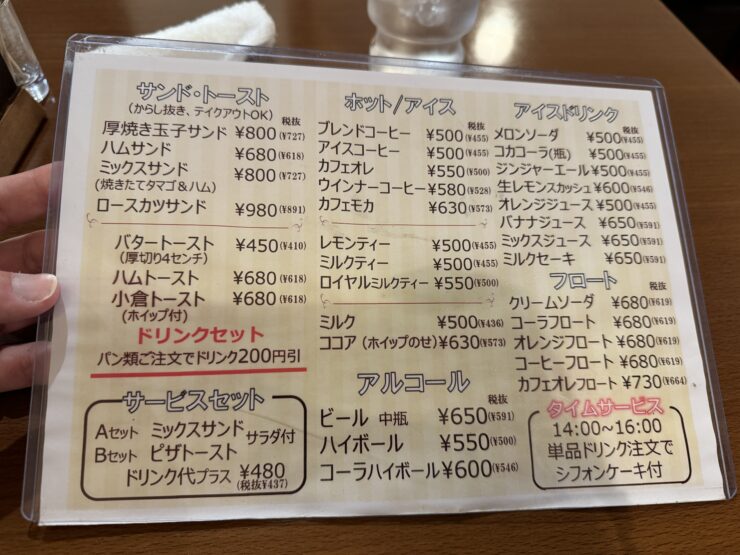 サンド・トースト
(からし抜き、テイクアウトOK)
税抜
厚焼き玉子サンド ¥800(¥727)
ハムサンド ¥680(¥618)
ミックスサンド ¥800(¥727)
(焼きたてタマゴ&ハム)
ロースカツサンド ¥980(¥891)
バタートースト ¥450(¥410)
(厚切り4センチ)
ハムトースト ¥680(¥618)
小倉トースト ¥680(¥618)
(ホイップ付)
ドリンクセット
パン類ご注文でドリンク200円引
サービスセット
Aセット ミックスサンド サラダ付
Bセット ピザトースト
ドリンク代プラス ¥480
(税抜¥437)
ホット/アイス
税抜
ブレンドコーヒー ¥500(¥455)
アイスコーヒー ¥500(¥455)
カフェオレ ¥550(¥500)
ウインナーコーヒー ¥580(¥528)
カフェモカ ¥630(¥573)
レモンティー ¥500(¥455)
ミルクティー ¥500(¥455)
ロイヤルミルクティー ¥550(¥500)
ミルク ¥500(¥436)
ココア(ホイップのせ) ¥630(¥573)
アルコール
税抜
ビール 中瓶 ¥650(¥591)
ハイボール ¥550(¥500)
コーラハイボール ¥600(¥546)
アイスドリンク
税抜
メロンソーダ ¥500(¥455)
コカコーラ(瓶) ¥500(¥455)
ジンジャーエール ¥500(¥455)
生レモンスカッシュ ¥600(¥546)
オレンジジュース ¥500(¥455)
バナナジュース ¥650(¥591)
ミックスジュース ¥650(¥591)
ミルクセーキ ¥650(¥591)
フロート
税抜
クリームソーダ ¥680(¥619)
コーラフロート ¥680(¥619)
オレンジフロート ¥680(¥619)
コーヒーフロート ¥680(¥619)
カフェオレフロート ¥730(¥664)
タイムサービス
14:00~16:00
単品ドリンク注文で
シフォンケーキ付